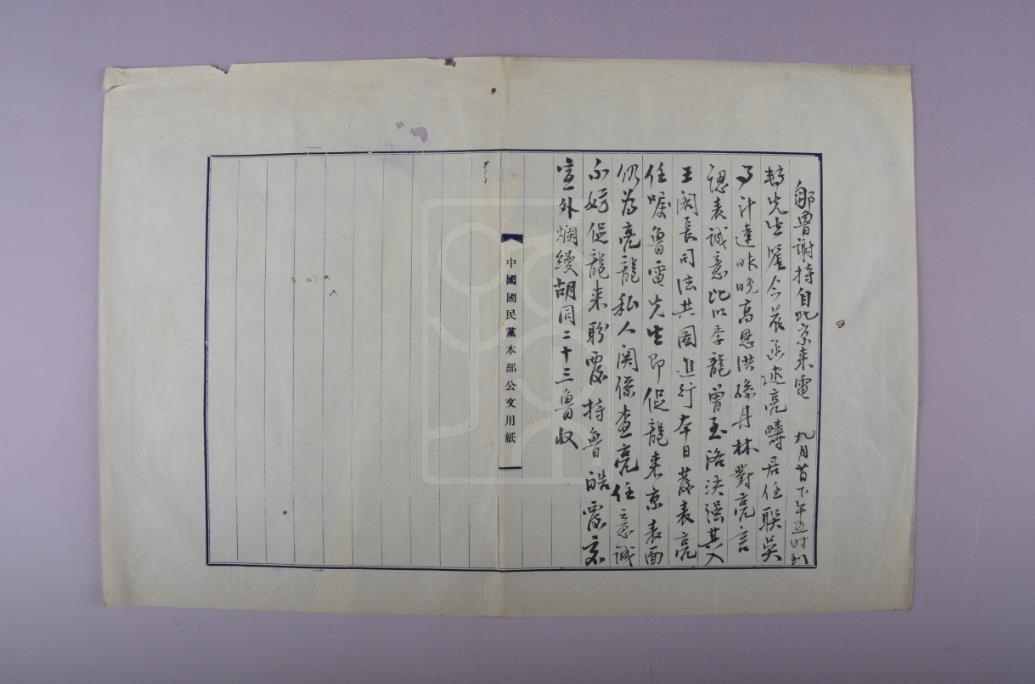 鄒魯謝持自北京來電　九月　日下午五時到
轉先生鑒今晨函述亮疇居任聯吳
事計達昨晚高恩洪孫丹林對亮言
認表誠意比以季龍曾至洛決強其入
王閣長司法共圖進行本日發表亮
任囑魯電先生即促龍來京表面
仍為亮龍私人關係查亮任意誠
不妨促龍來盼覆持魯皓覆交
宣外爛縵胡同二十三魯收
中國國民黨本部公文用紙